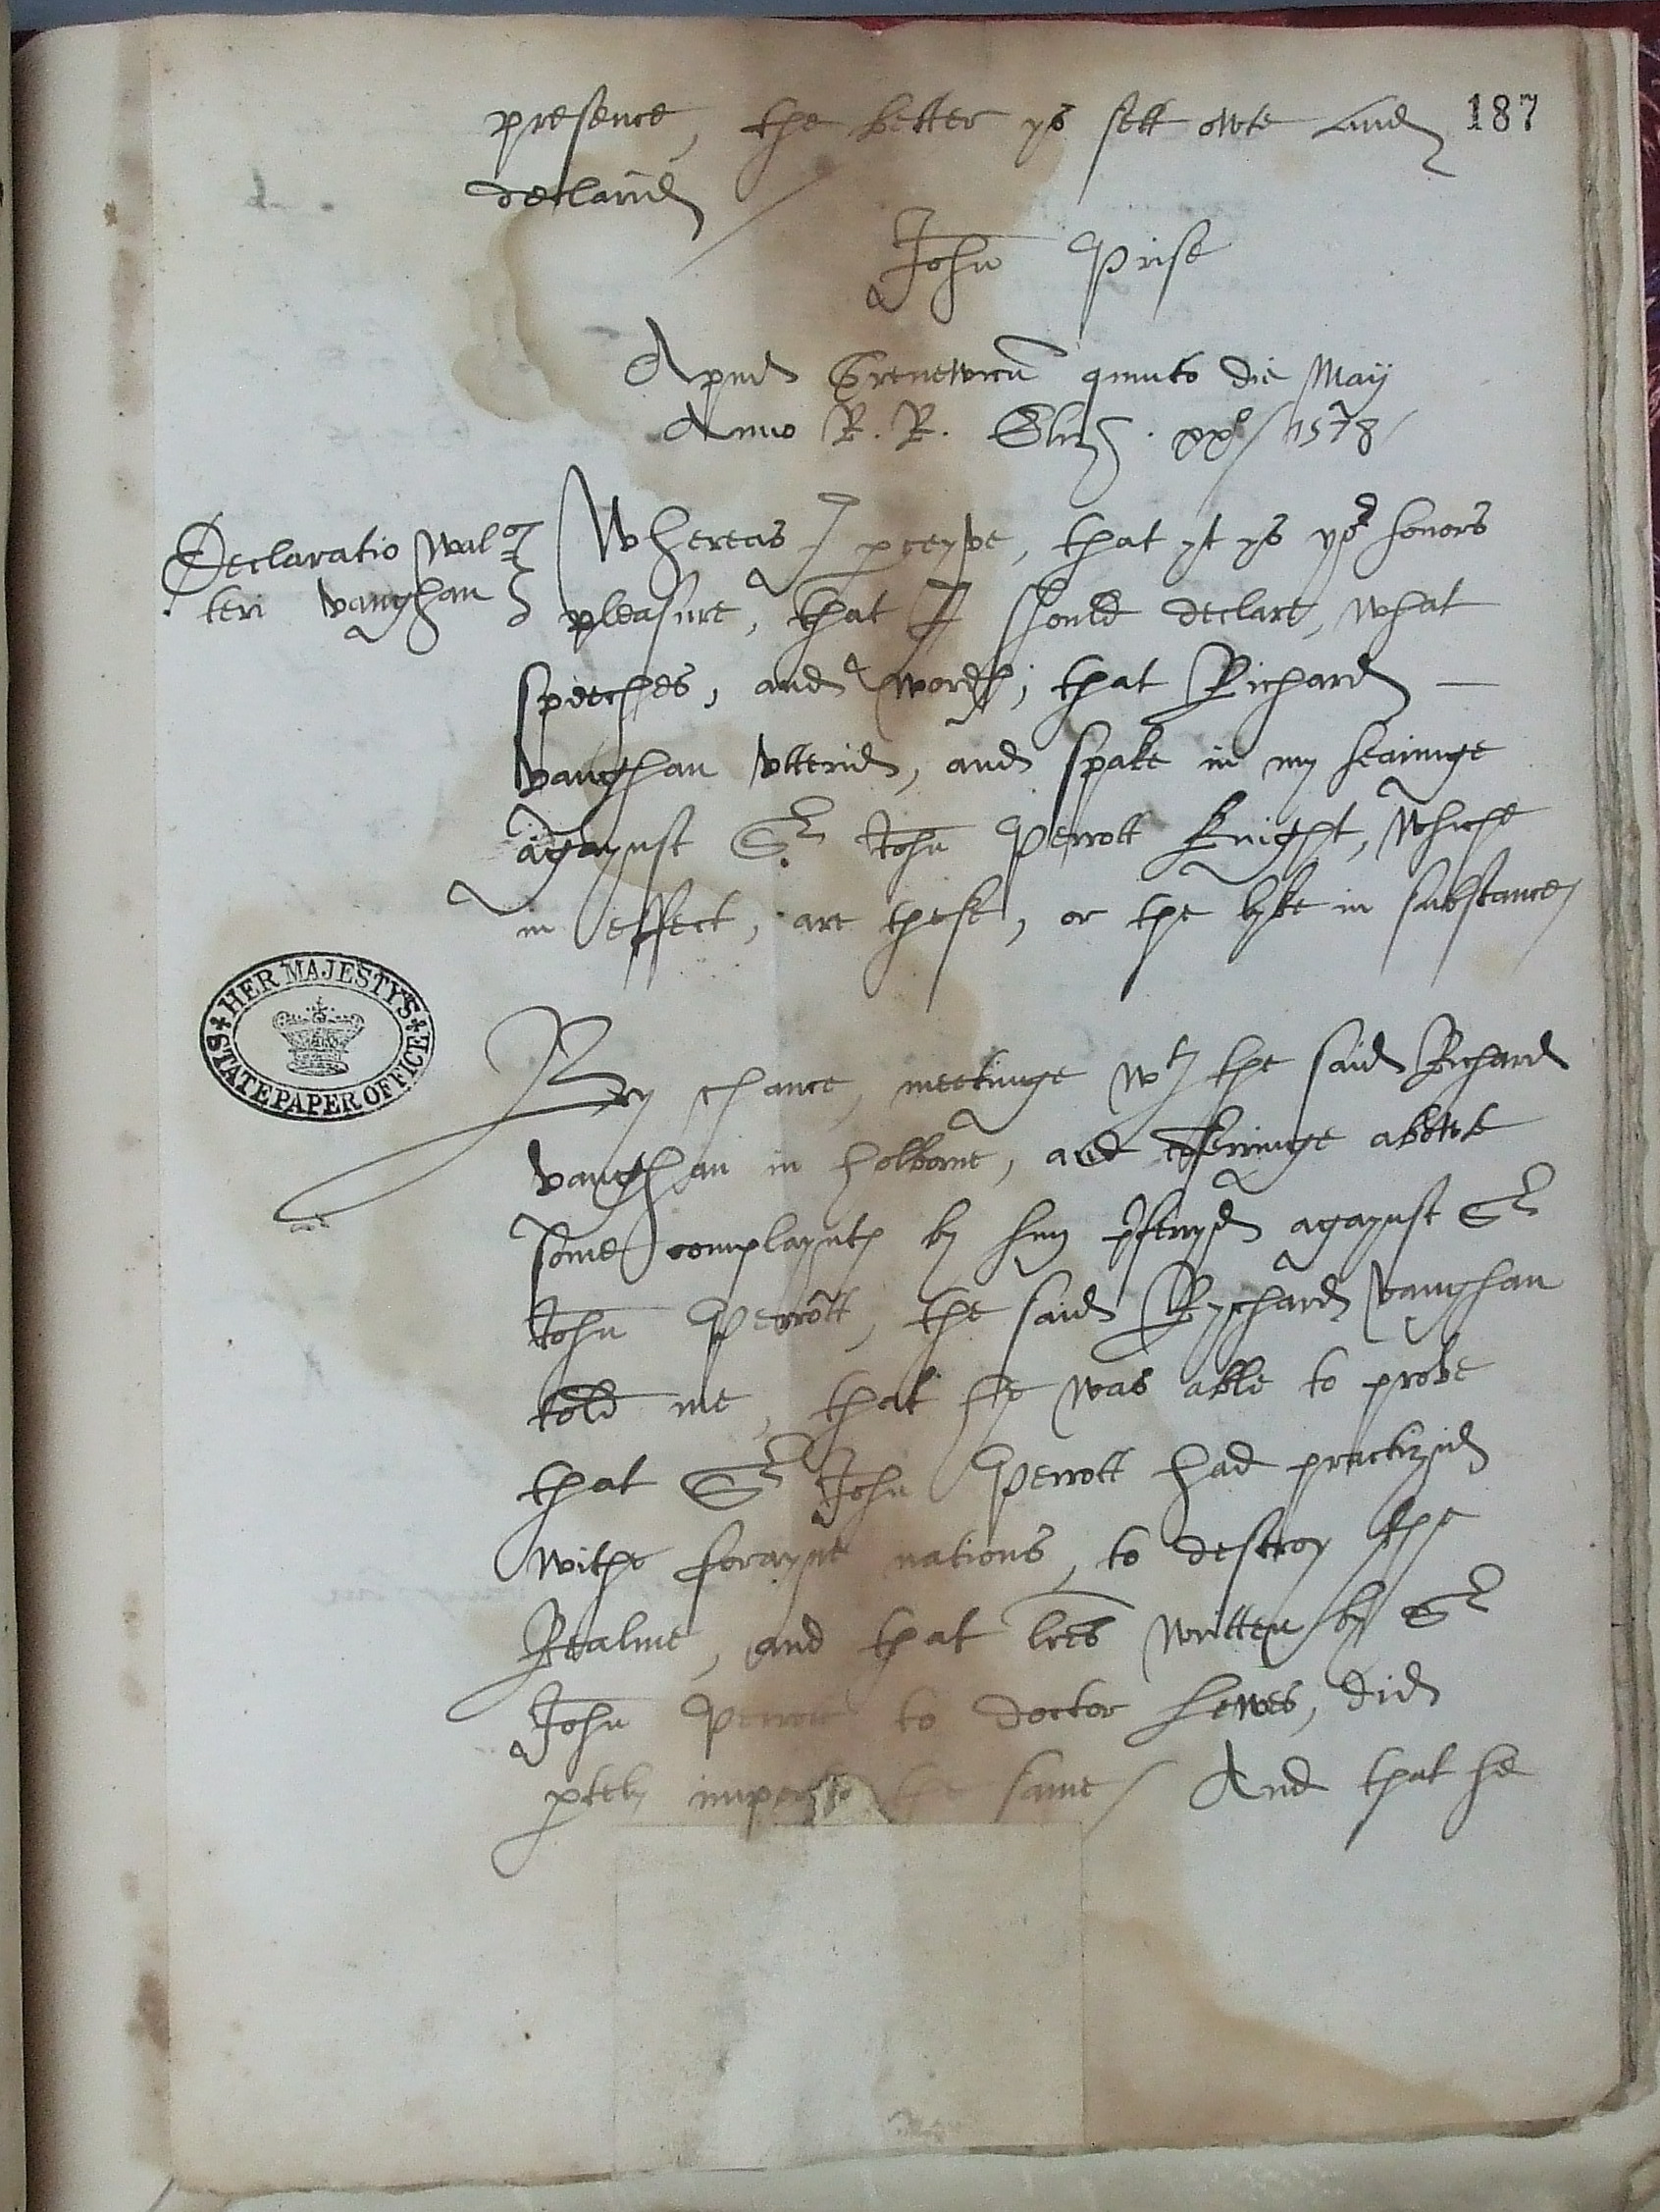 187
presence, the better ys sett owte and
declarid
John Prise
Apud Grenewicũ quinto die Maij
Anno R. R. Eliz. xx° 1578
Declaratio Wal
teri Vaughan
Whereas I pceyve, that yt ys yor honors
pleasure, that I should declare, what
speeches, and wordes, that Richard
Vaughan vtterid, and spake in my hearinge
agaynst Sr John Perrott knight, whiche
in effect, are these, or the lyke in substance
HER MAJESTYS STATE PAPER OFFICE
By chance, meetinge wth the said Richard
Vaughan in holborne, and coferringe abowte
some complayntes by hym pferryd agaynst Sr
John Perrott, the said Rychard Vaughan
told me, that he was able to prove
that Sr John Perrott had practizid
withe forayne nations, to destroy the
Realme, and that lres written by Sr
John Perrott to doctor Lewes, did
ptely the same / And that he